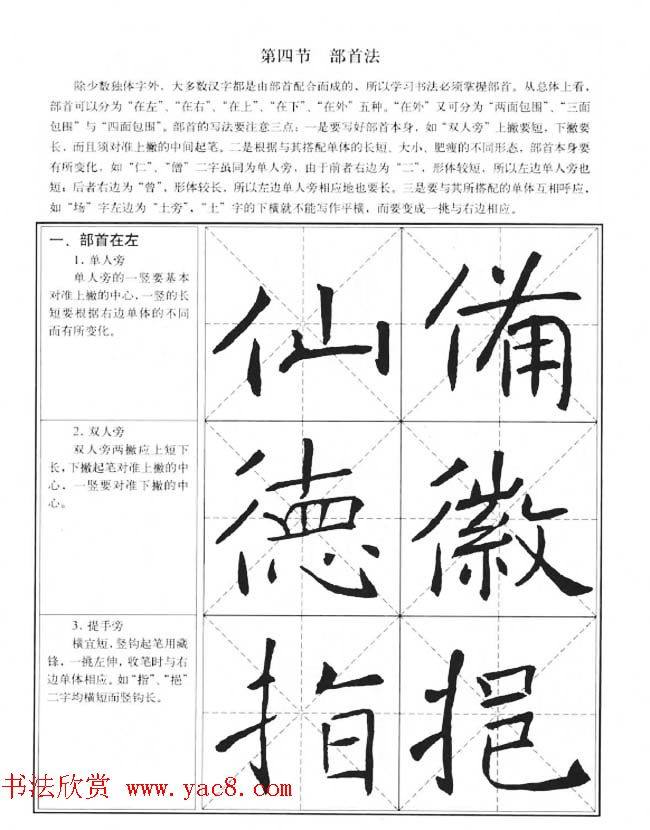 第四节 部首法
除少数独体字外，大多数汉字都是由部首配合而成的，所以学习书法必须掌握部首。从总体上看，
部首可以分为“在左”、“在右”、“在上”、“在下”、“在外”五种。“在外”又可分为“两面包围”、“三面
包围”与“四面包围”。部首的写法要注意三点：一是要写好部首本身，如“双人旁”上撇要短，下撇要
长，而且须对准上撇的中间起笔。二是根据与其搭配单体的长短、大小、肥瘦的不同形态，部首本身要
有所变化，如“仁”、“僧”二字虽同为单人旁，由于前者右边为“二”，形体较短，所以左边单人旁也
短；后者右边为“曾”，形体较长，所以左边单人旁相应地也要长。三是要与其所搭配的单体互相呼应，
如“场”字左边为“土旁”，“土”字的下横就不能写作平横，而要变成一挑与右边相应。
一、部首在左
1. 单人旁
单人旁的一竖要基本
对准上撇的中心，一竖的长
短要根据右边单体的不同
而有所变化。
仙 備
2. 双人旁
双人旁两撇应上短下
长，下撇起笔对准上撇的中
心，一竖要对准下撇的中
心。
德 徽
3. 提手旁
横宜短，竖钩起笔用藏
锋，一挑左伸，收笔时与右
边单体相应。如“指”、“挹”
二字均横短而竖钩长。
指 挹
书法欣赏 www.yac8.com